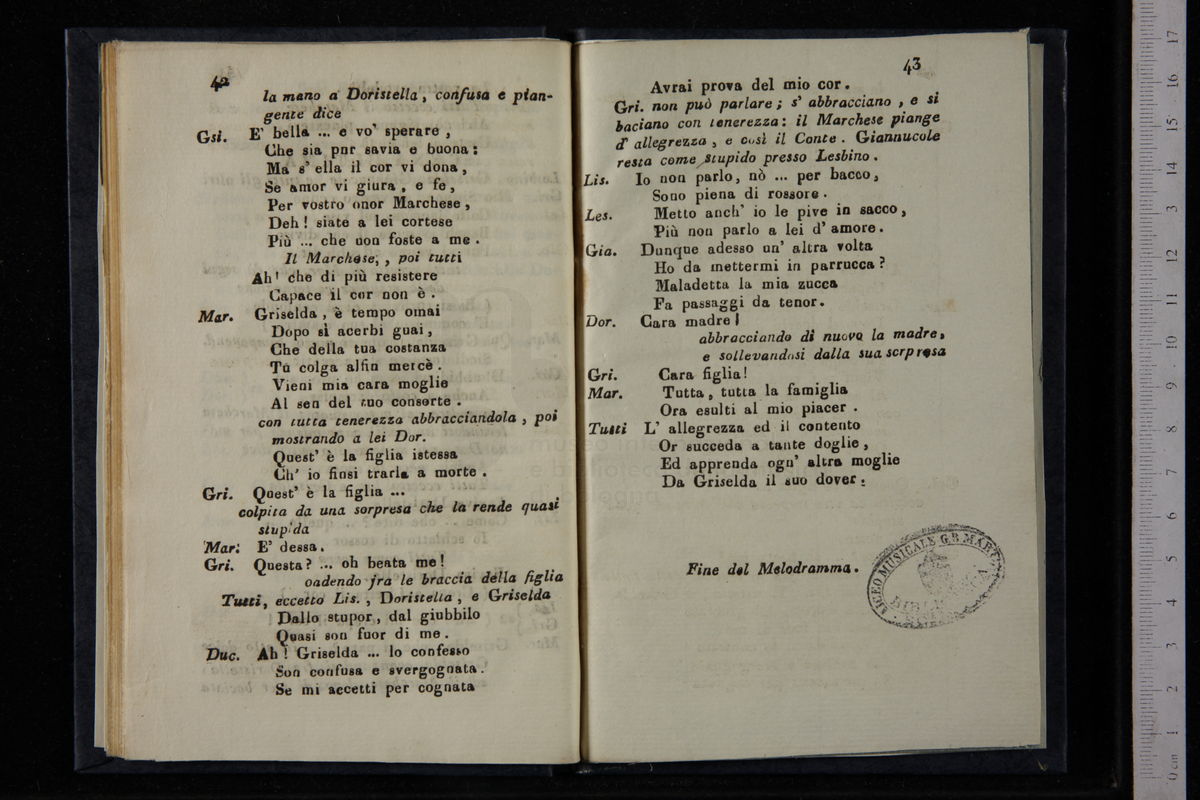 42
la mano a Doristella, confusa e pian-
gente dice
Gsi. E' bella ... e vo' sperare,
Che sia pur savia e buona:
Ma s' ella il cor vi dona,
Se amor vi giura, e fe,
Per vostro onor Marchese,
Deh! siate a lei cortese
Più ... che non foste a me.
Il Marchese;, poi tutti
Ah! che di più resistere
Capace il cor non è.
Mar. Griselda, è tempo omai
Dopo sì acerbi guai,
Che della tua costanza
Tu colga alfin mercè.
Vieni mia cara moglie
Al sen del tuo consorte.
con tutta tenerezza abbracciandola, poi
mostrando a lei Dor.
Quest' è la figlia istessa
Ch' io finsi trarla a morte.
Gri. Quest' è la figlia ...
colpita da una sorpresa che la rende quasi
stupida
Mar: E' dessa.
Gri. Questa? ... oh beata me!
oadendo fra le braccia della figlia
Tutti, eccetto Lis., Doristella, e Griselda
Dallo stupor, dal giubbilo
Quasi son fuor di me.
Duc. Ah! Griselda ... Io confesso
Son confusa e svergognata.
Se mi accetti per cognata
43
Avrai prova del mio cor.
Gri. non può parlare; s' abbracciano, e si
baciano con tenerezza: il Marchese piange
d' allegrezza, e così il Conte. Giannucole
resta come stupido presso Lesbino.
Lis. Io non parlo, nò ... per bacco,
Sono piena di rossore.
Les. Metto anch' io le pive in sacco,
Più non parlo a lei d' amore.
Gia. Dunque adesso un' altra volta
Ho da mettermi in parrucca?
Maladetta la mia zucca
Fa passaggi da tenor.
Dor. Cara madre!
abbracciando di nuovo la madre,
e sollevandosi dalla sua scrpresa
Gri. Cara figlia!
Mar. Tutta, tutta la famiglia
Ora esulti al mio piacer.
Tutti L' allegrezza ed il contento
Or succeda a tante doglie,
Ed apprenda ogn' altra moglie
Da Griselda il suo dover:
Fine del Melodramma.
LICEO MUSICALE G.B. MARTINI
BIBLIOTECA
museo
e biblioteca
bologna
0 cm 1 2 3 4 5 6 7 8 9 10 11 12 13 14 15 16 17